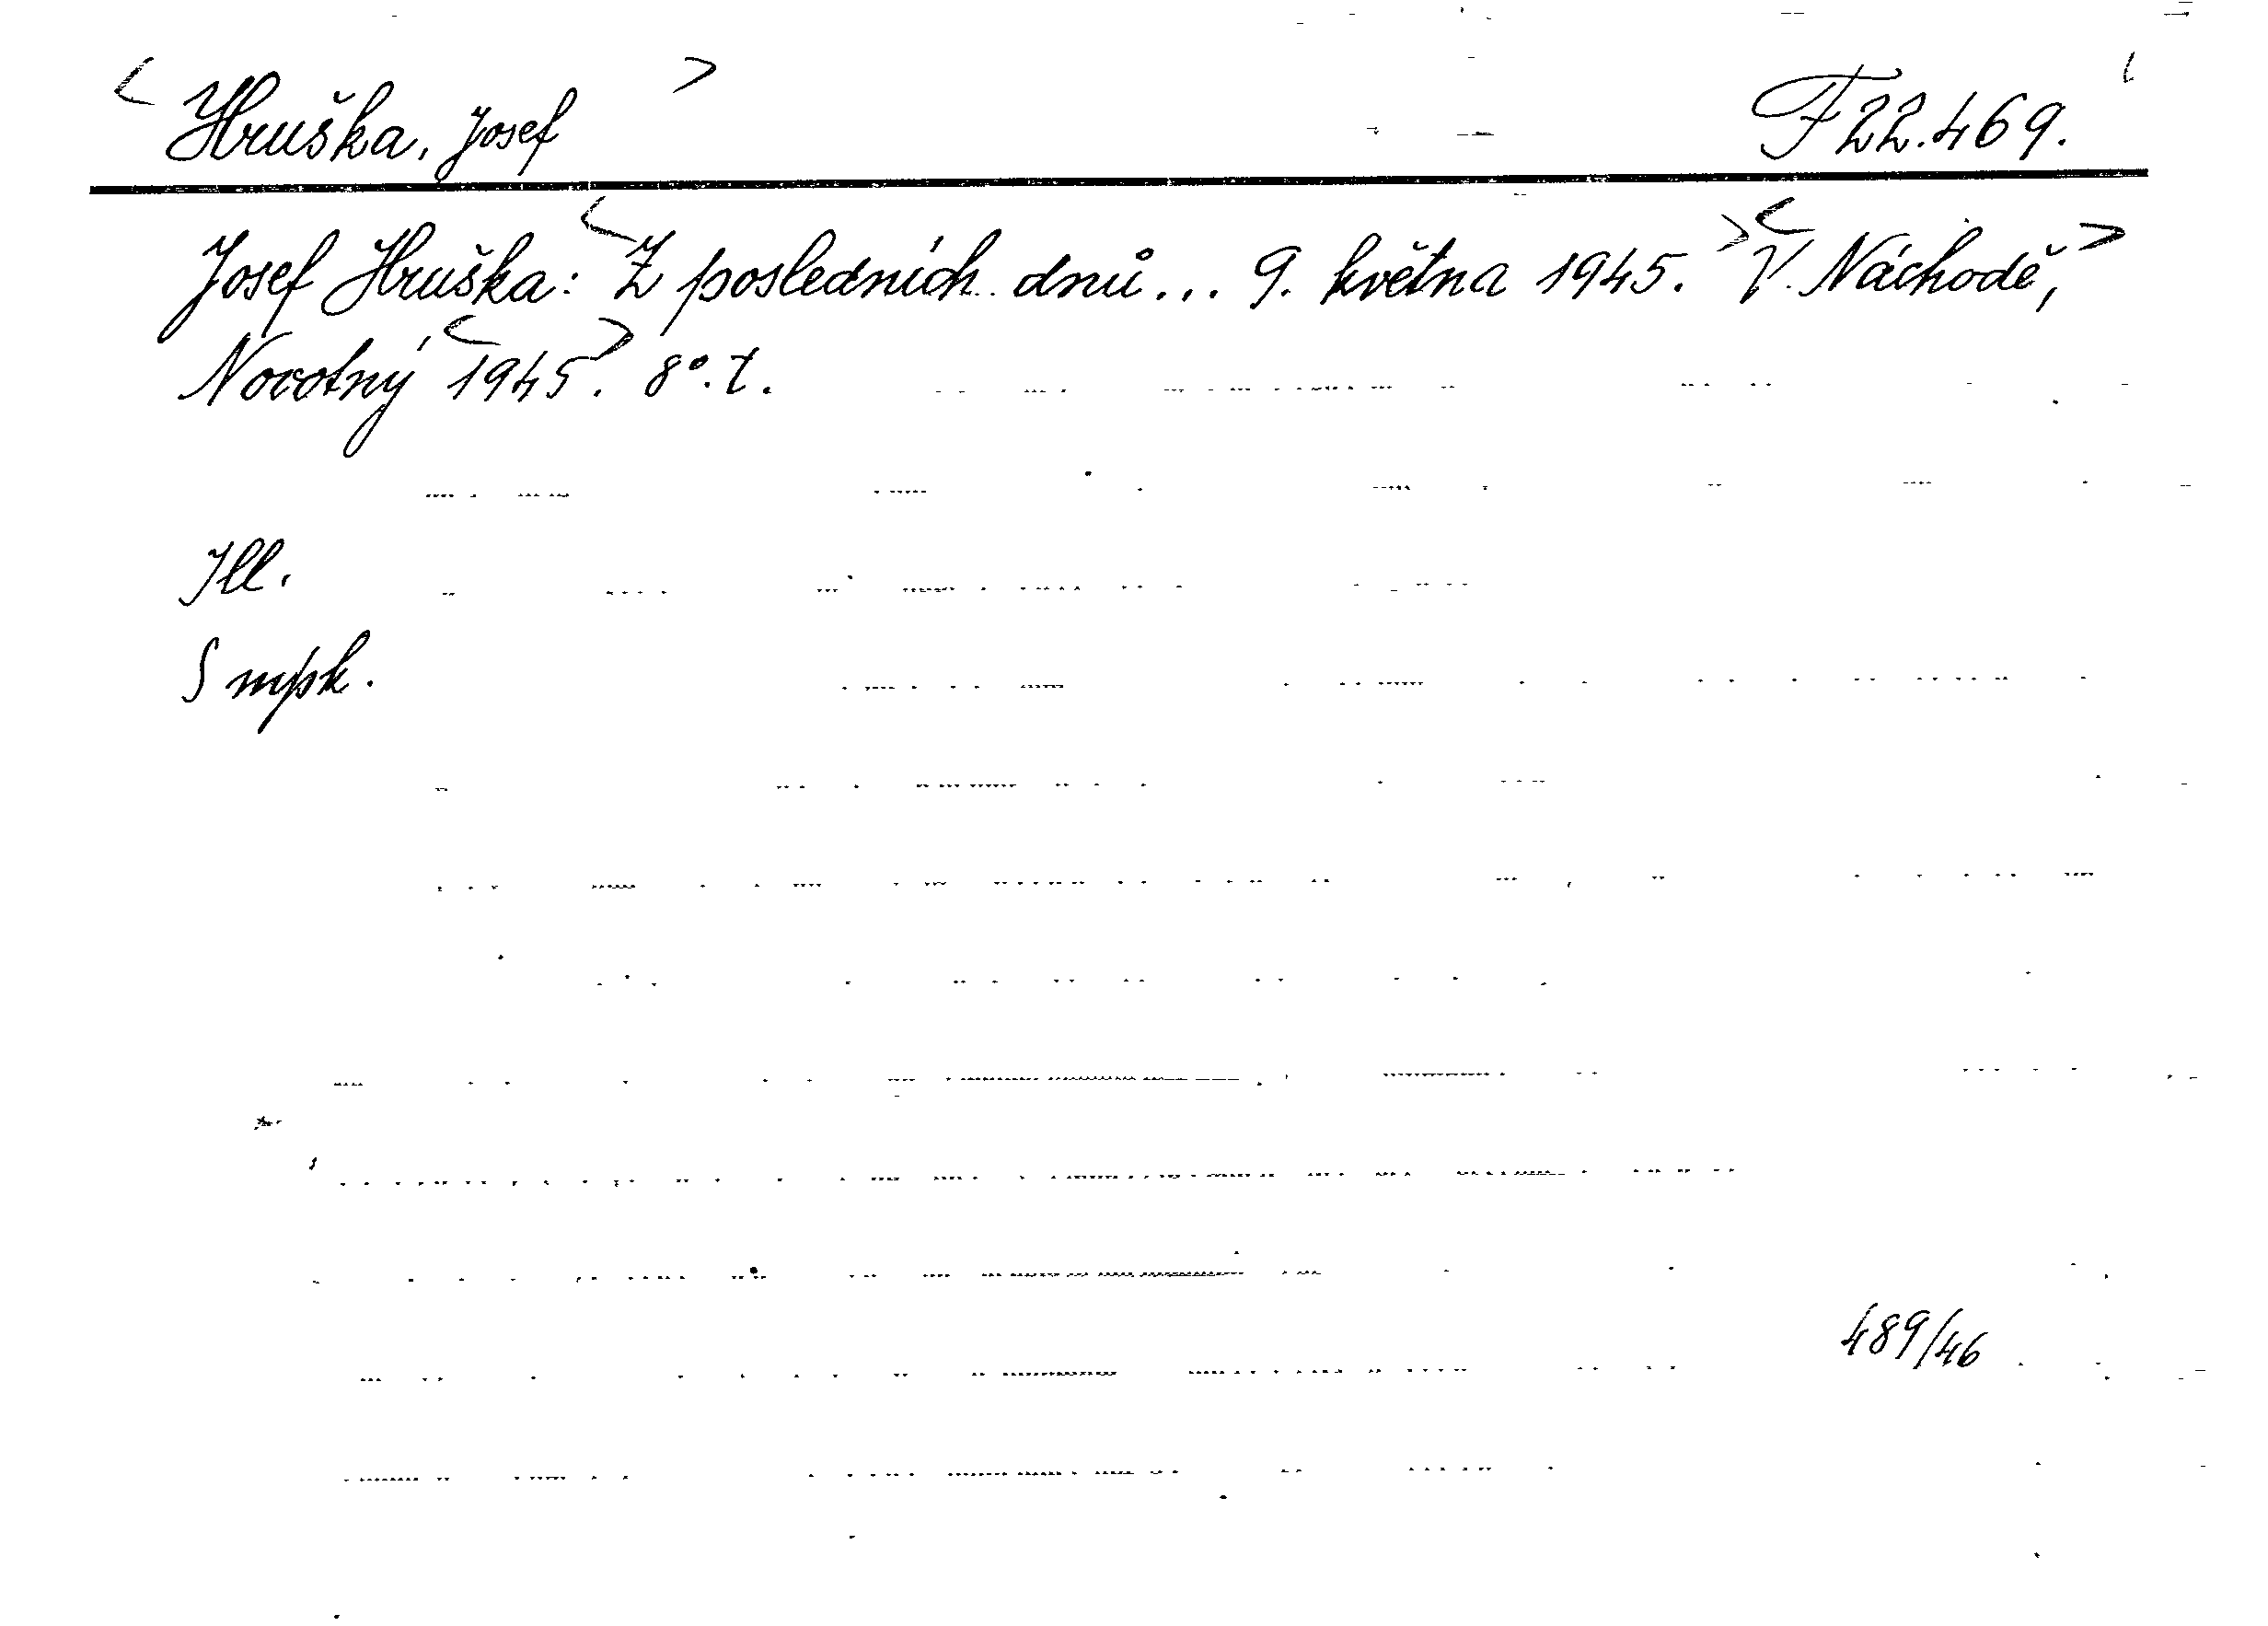 < Hruška, Josef > F 22.469.
Josef Hruška: <Z posledních dnů... 9. května 1945.> <V Náchodě,>
Novotný <1945>. 8°. t.
Ill.
S mpk.
489/46